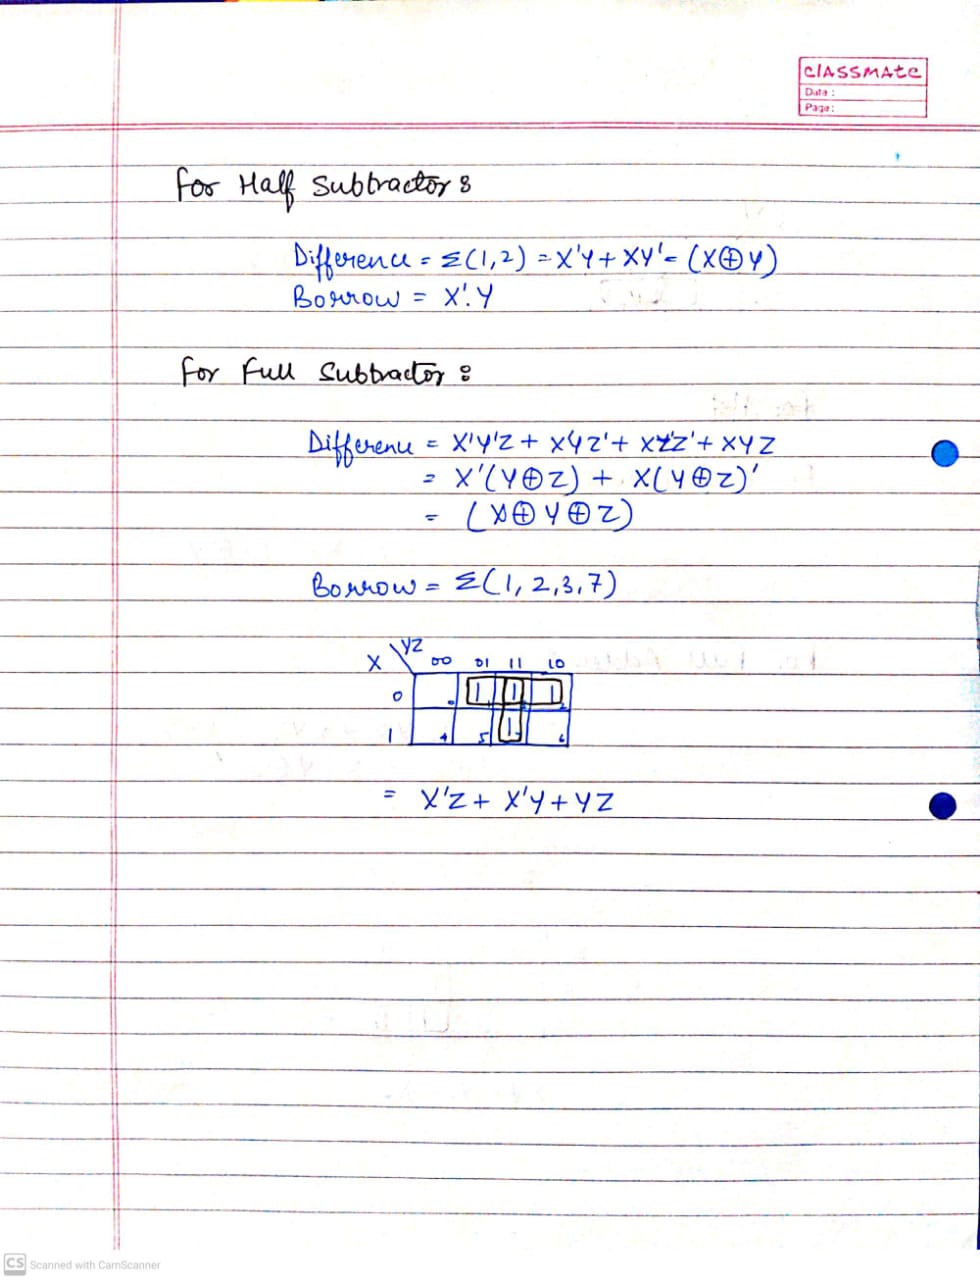 classmate
Date :
Page :
for Half Subtractor :
Difference = Σ(1,2) = X'Y + XY' = (X⊕Y)
Borrow = X'.Y
for full Subtractor :
Difference = X'Y'Z + X'YZ' + XY'Z' + XYZ
= X'(Y⊕Z) + X(Y⊕Z)'
= (X⊕Y⊕Z)
Borrow = Σ(1, 2,3,7)
X \ YZ 00 01 11 10
0 0 1 1 1 3 1 2
1 4 5 1 7 6
= X'Z + X'Y + YZ
CS Scanned with CamScanner